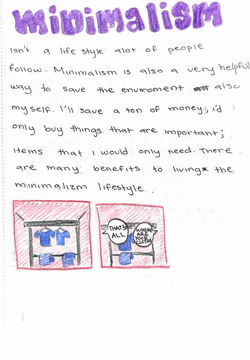 minimalism
isn't a life style alot of people
follow. Minimalism is also a very helpful
way to save the enviroment also
myself. I'll save a ton of money; i'd
only buy things that are important;
items that I would only need. There
are many benefits to living the
minimalizm lifestyle.
THATS
ALL